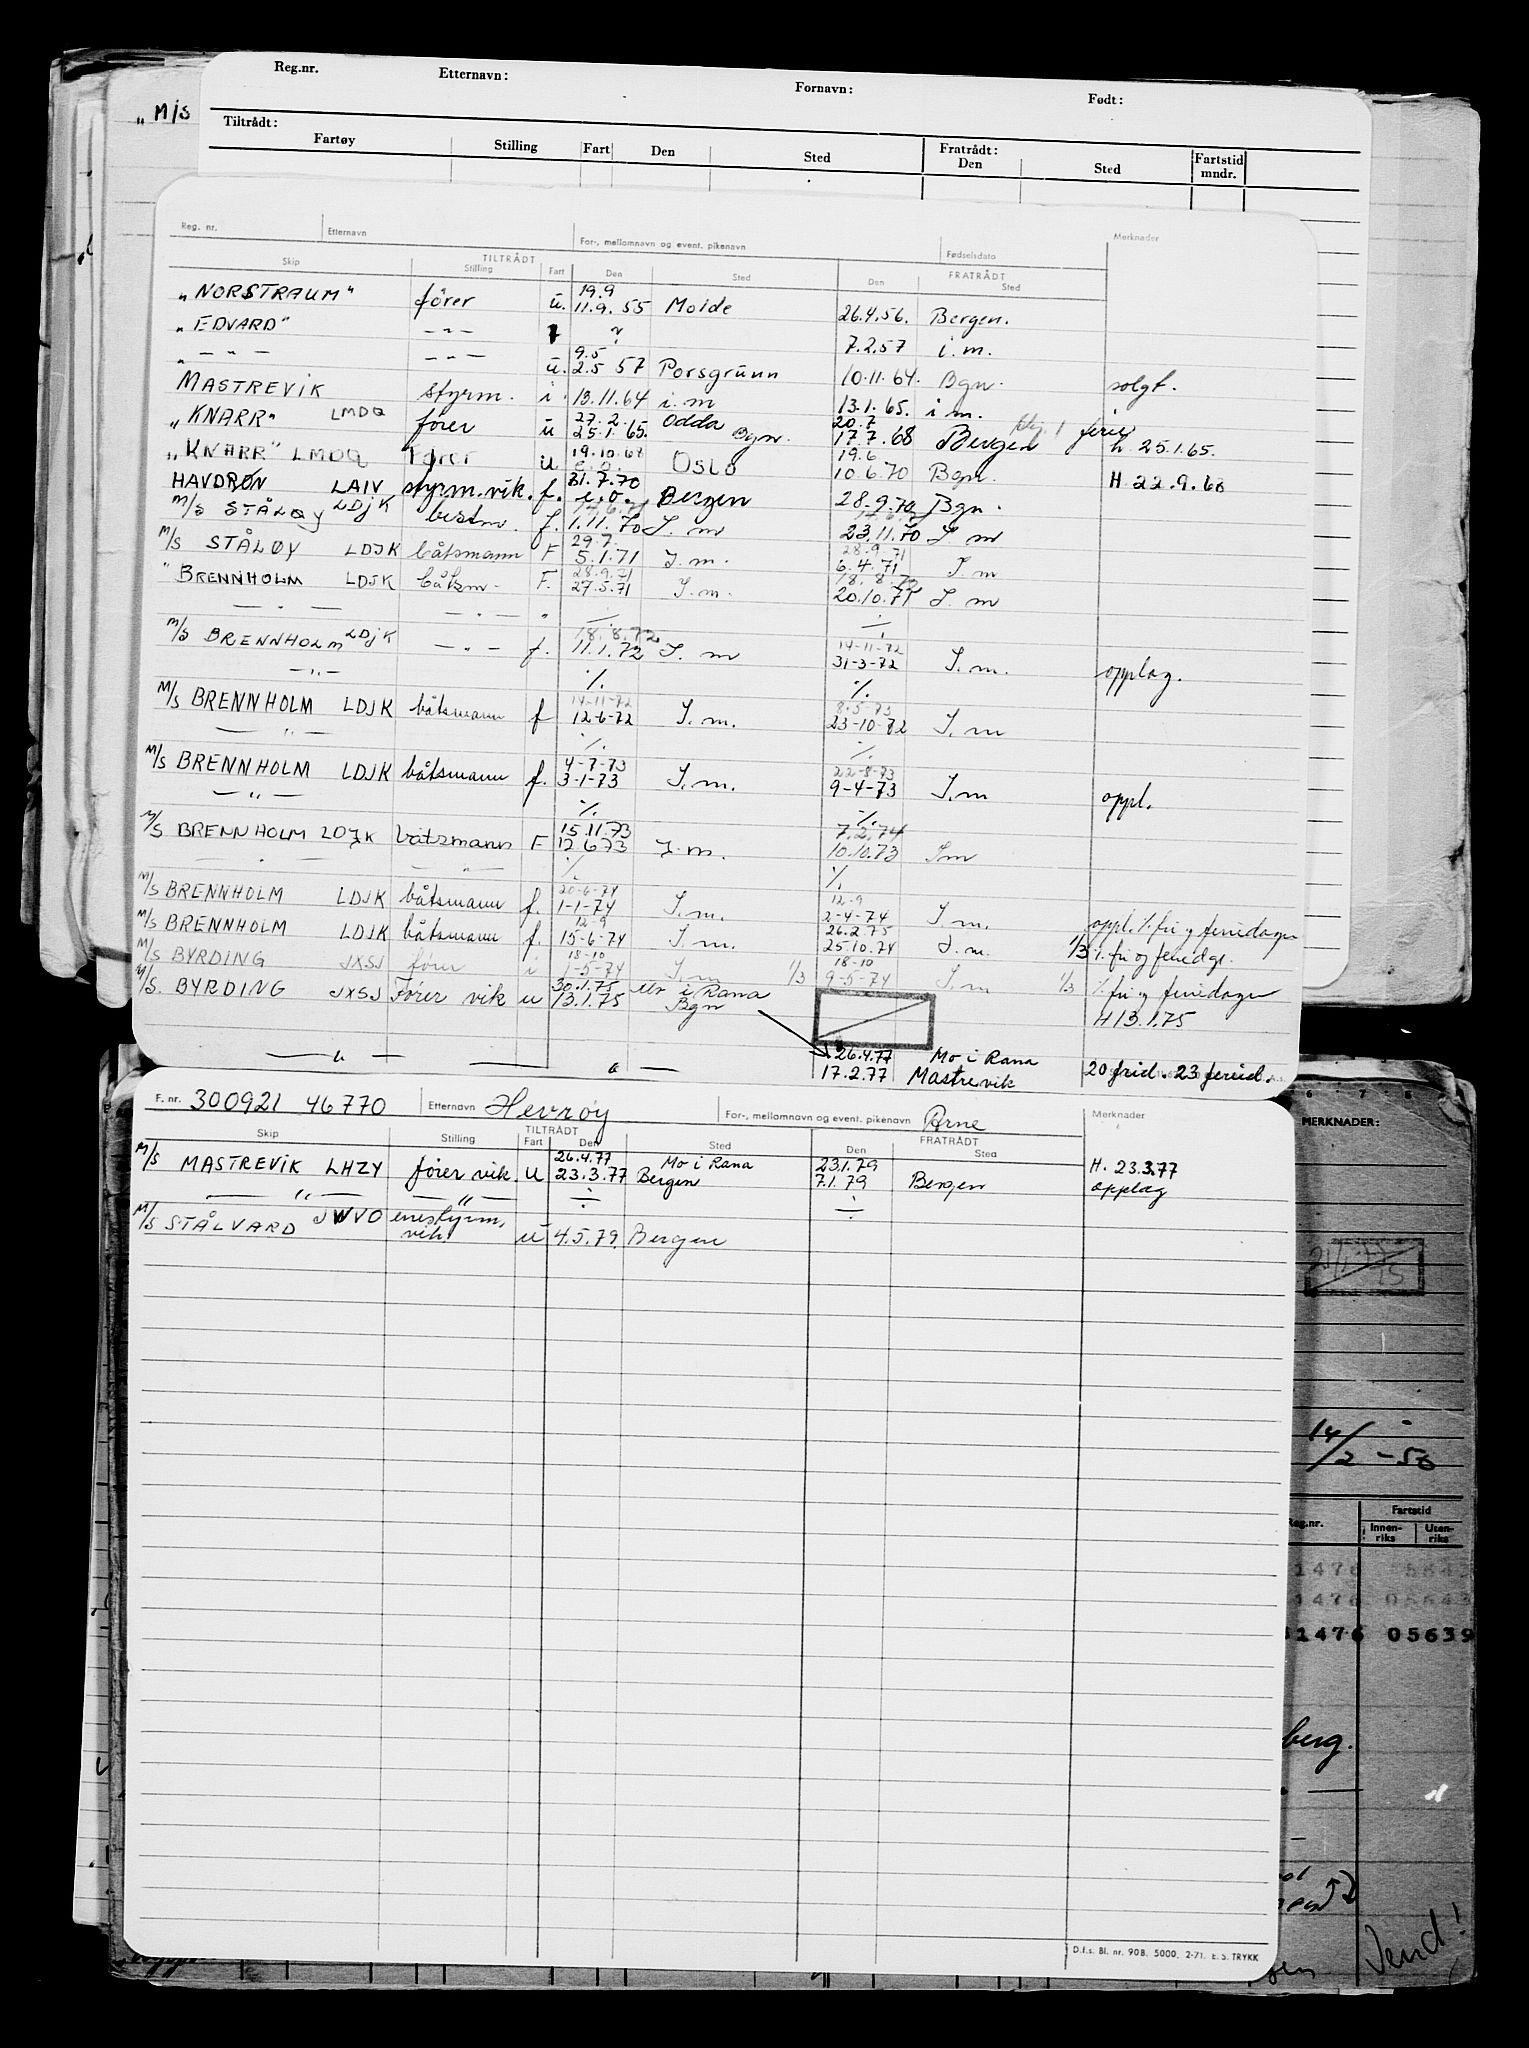 Reg.nr. Etternavn: Fornavn: Født:
„ M/S
Tiltrådt: Fratrådt:
Fartøy Stilling Fart Den Sted Den Sted Fartstid mndr.
Reg. nr. Etternavn For-, mellomnavn og event. pikenavn Fødselsdato Merknader
TILTRÅDT FRATRÅDT
Skip Stilling Fart Den Sted Den Sted
19.9
„NORSTRAUM" fører u. 11.9.55 Molde 26.4.56. Bergen.
„EDVARD" —"— ? 7.2.57 i.m.
9.5
„ — " — —"— u. 2.5 57 Porsgrunn 10.11.64. Bgn. solgt.
MASTREVIK styrm. i. 13.11.64 i.m 13.1.65. i m.
27.2. Odda 20.7
„KNARR" LMDQ fører u 25.1.65. Bgn. 17.7.68 Bergen ferie h. 25.1.65.
19.10.68 19.6
„KNARR" LMDQ fører u e.o. Oslo 10.6.70 Bgn. H 22.9.68
31.7.70
HAVDRØN LAIV styrm.vik. f. e.o. Bergen 28.9.70 Bgn.
M/S STÅLØY LDJK bestm. f. 1.11.70 I. m 23.11.70 I m
29.7. 28.9.71
M/S STÅLØY LDJK båtsmann F 5.1.71 I.m. 6.4.71 I m
28.9.71 18.8.72
" BRENNHOLM LDJK båtsm. F. 27.5.71 I.m. 20.10.71 I. m
— " — — " — " ./. ./.
18.8.72 14-11-72
M/S BRENNHOLM LDJK — " — f. 11.1.72 I. m 31-3-72 I.m. opplag.
— " — ./. ./.
14-11-72 8.5-73
M/S BRENNHOLM LDJK båtsmann f 12-6-72 I.m. 23-10-72 I.m
— " — ./. ./.
4-7-73 22-8-73
M/S BRENNHOLM LDJK båtsmann f. 3-1-73 I.m. 9-4-73 I.m oppl.
— " — ./. ./.
15.11.73 7.2.74
M/S BRENNHOLM LDJK båtsmann F 12.6.73 I.m. 10.10.73 Im
— " — — " — ./. ./.
20-6-74 12-9
M/S BRENNHOLM LDJK båtsmann f. 1-1-74 I.m. 2-4-74 I.m. oppl. ./. fri og feriedager
12-9 26.2.75
M/S BRENNHOLM LDJK båtsmann f. 15-6-74 I.m. 25.10.74 I.m. 1/3 ./. fri og feriedgr.
18-10 18-10
M/S BYRDING JXSJ fører i 1-5-74 I.m 1/3 9-5-74 I.m 1/3 ./. fri og feriedager
30.1.75 Mo i Rana
M/S. BYRDING JXSJ Fører vik u 13.1.75 Bgn H 13.1.75
26.4.77 Mo i Rana
— " — — " — 17.2.77 Mastrevik 20 frid. 23 feried.
F. nr. 300921 46770 Etternavn Hevrøy For-, mellomnavn og event. pikenavn Arne Merknader
TILTRÅDT FRATRÅDT
Skip Stilling Fart Den Sted Den Sted
26.4.77 Mo i Rana 23.1.79 H. 23.3.77
M/S MASTREVIK LHZY fører vik. U 23.3.77 Bergen 7.1.79 Bergen opplag
— " — — " — ÷ ÷
M/S STÅLVARD JWVO enestyrm. vik. u 4.5.79. Bergen
D.f.s. Bl. nr. 90B. 5000. 2-71. E.S. TRYKK
6 - 7 - 8
MERKNADER:
14/2 -56
Reg.nr. Fartstid
Innenriks Utenriks
1476 0564
1476 05643
1476 05639
berg.
Vend!